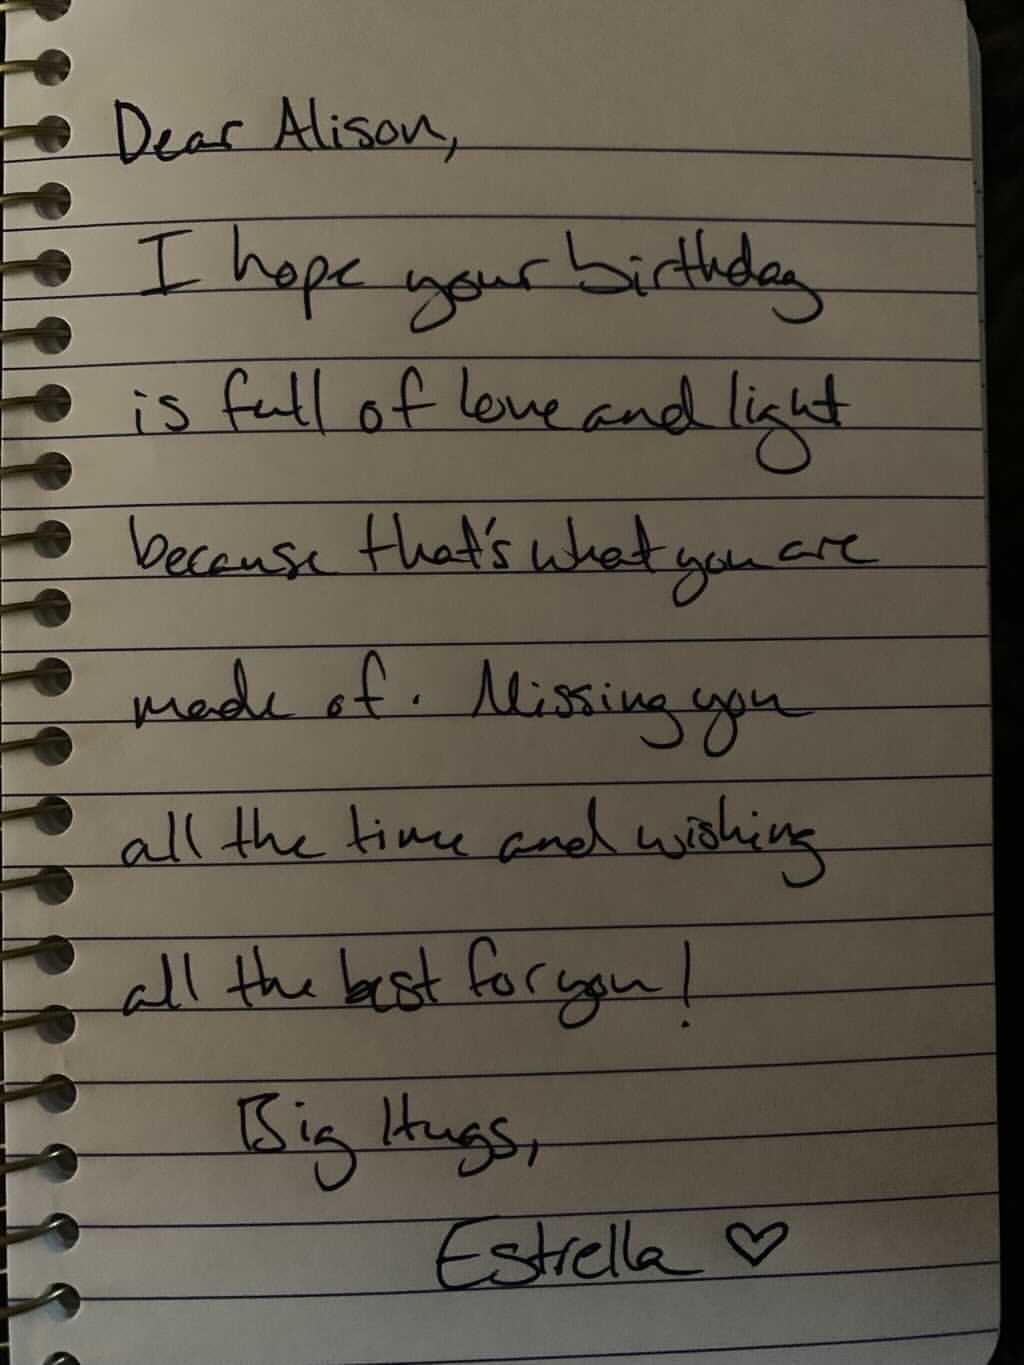 Dear Alison,
I hope your birthday
is full of love and light
because that's what you are
made of. Missing you
all the time and wishing
all the best for you!
Big Hugs,
Estrella ♡